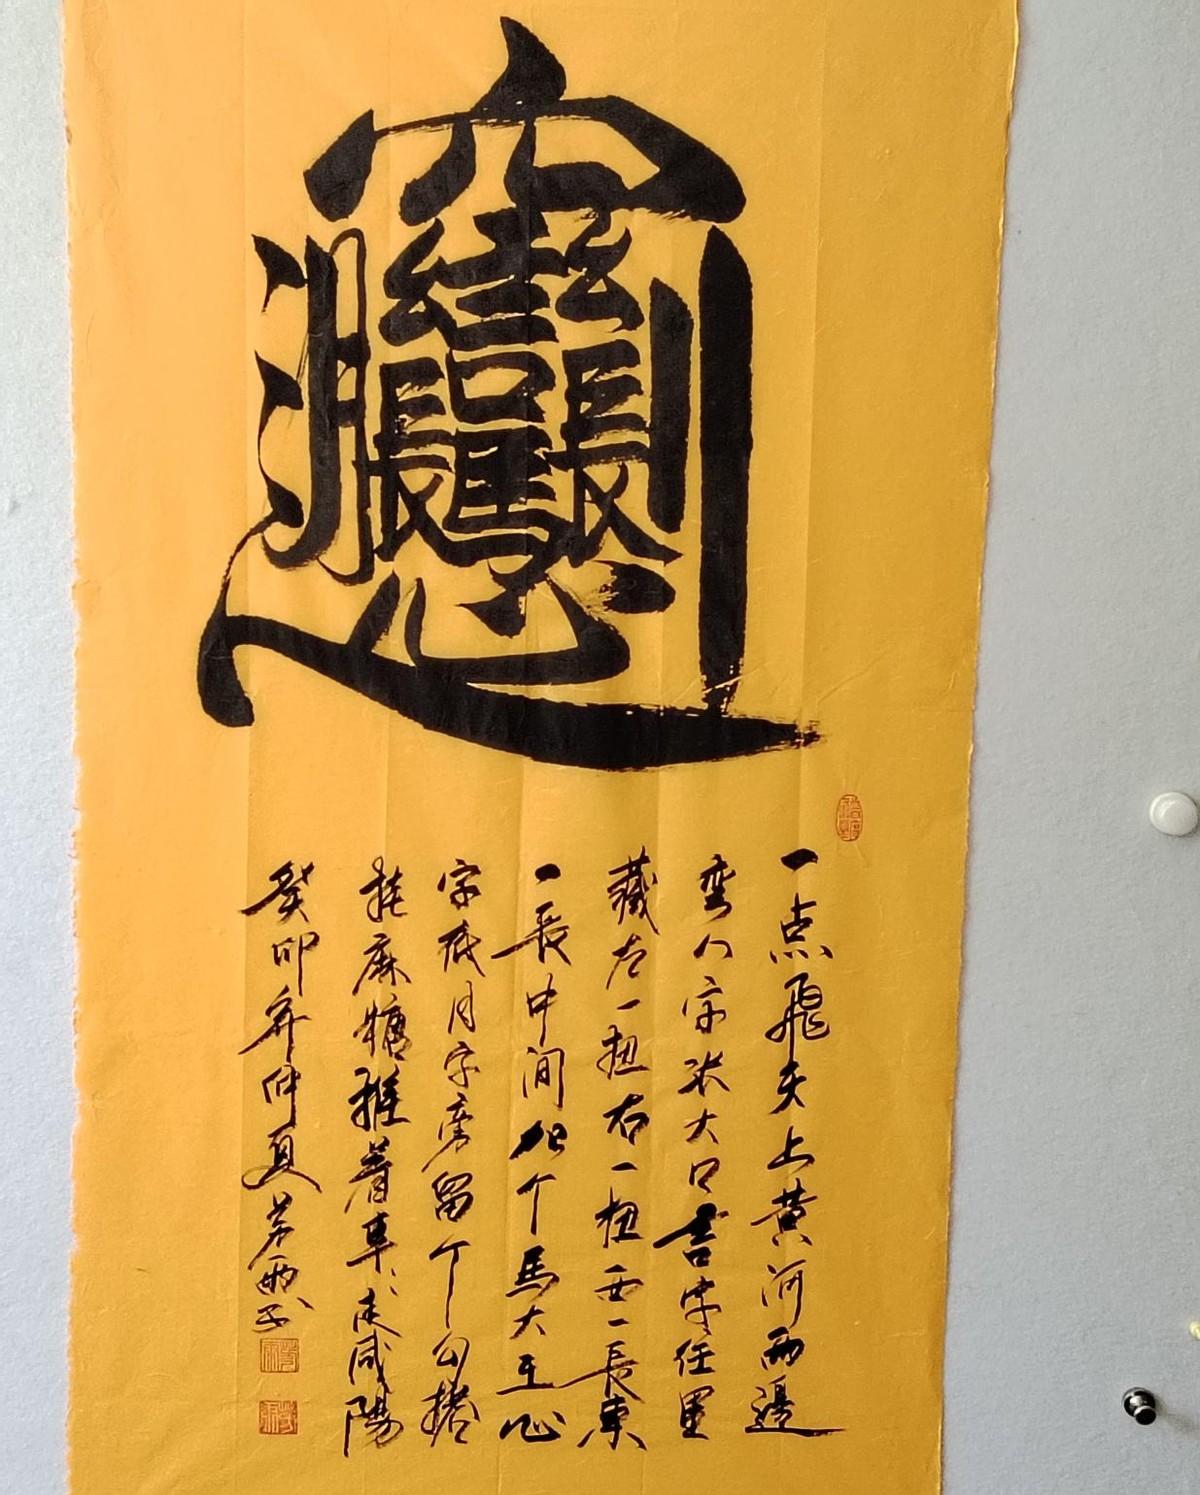 𰻞
一点飛天上黄河兩邊
弯八字张大口言字往里
藏左一扭右一扭西一長東
一長中间加个馬大王心
字底月字旁留个勾搭
挂麻糖推着車々走咸陽
癸卯年仲夏